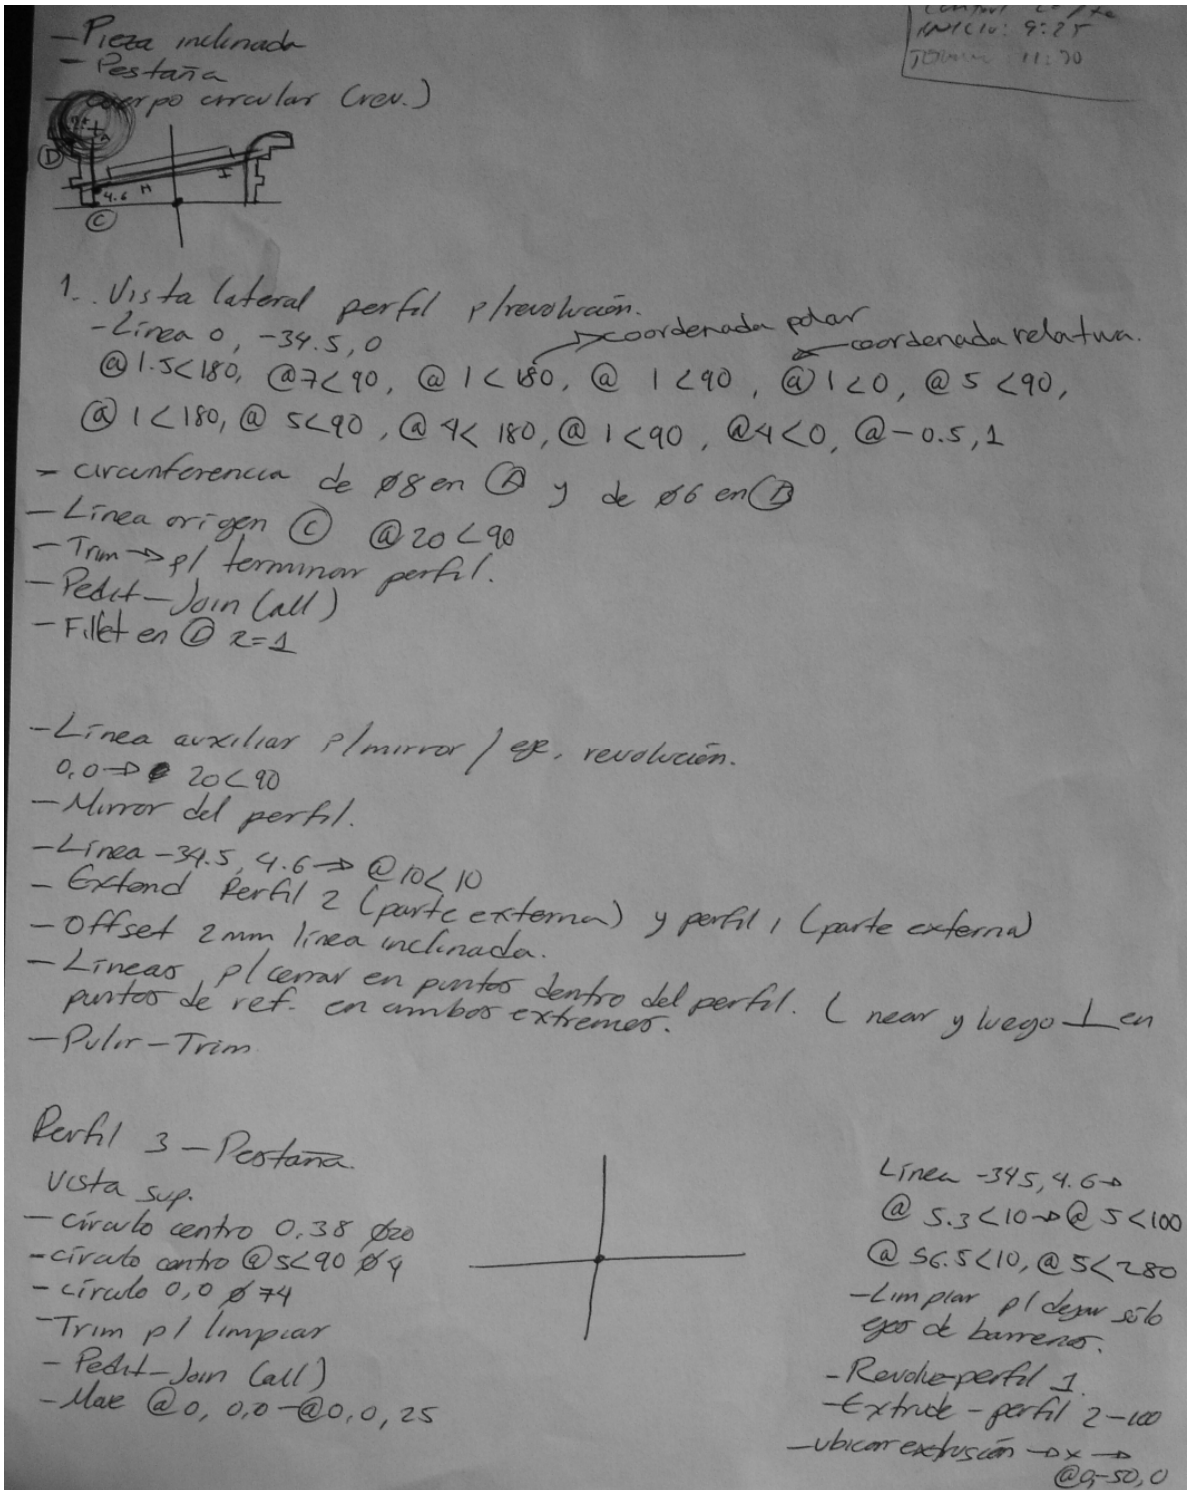 INICIO: 9:25
11:30
- Pieza inclinada
- Pestaña
- Cuerpo circular (rev.)
D
4.6 H I
C
1.. Vista lateral perfil p/revolución.
-Línea 0, -34.5,0
coordenada polar
coordenada relativa.
@1.5<180, @7<90, @1<180, @ 1<90, @1<0, @5<90,
@ 1<180, @ 5<90, @ 4< 180, @1<90, @4<0, @-0.5,1
- circunferencia de Ø8 en A y de Ø6 en B
- Línea origen C @20<90
- Trim → p/ terminar perfil.
- Pedit-Join (all)
- Fillet en D r=1
-Línea auxiliar p/mirror / eje. revolución.
0,0 → 20<90
- Mirror del perfil.
- Línea -34.5, 4.6 → @10<10
- Extend Perfil 2 (parte externa) y perfil 1 (parte externa)
- Offset 2mm línea inclinada.
- Líneas p/cerrar en puntos dentro del perfil. (near y luego ⊥ en
puntos de ref. en ambos extremos.
- Pulir - Trim
Perfil 3 - Pestaña.
Vista sup.
- círculo centro 0,38 Ø20
- círculo centro @5<90 Ø4
- círculo 0,0 Ø74
- Trim p/ limpiar
- Pedit-Join (all)
- Move @0, 0,0 - @0,0,25
Línea -345, 4.6→
@ 5.3<10→@ 5<100
@ 56.5<10, @5<280
-Limpiar p/ dejar sólo
ejes de barrenos.
- Revolve-perfil 1.
-Extrude - perfil 2-100
-ubicar extrusión → x →
@0,-50,0